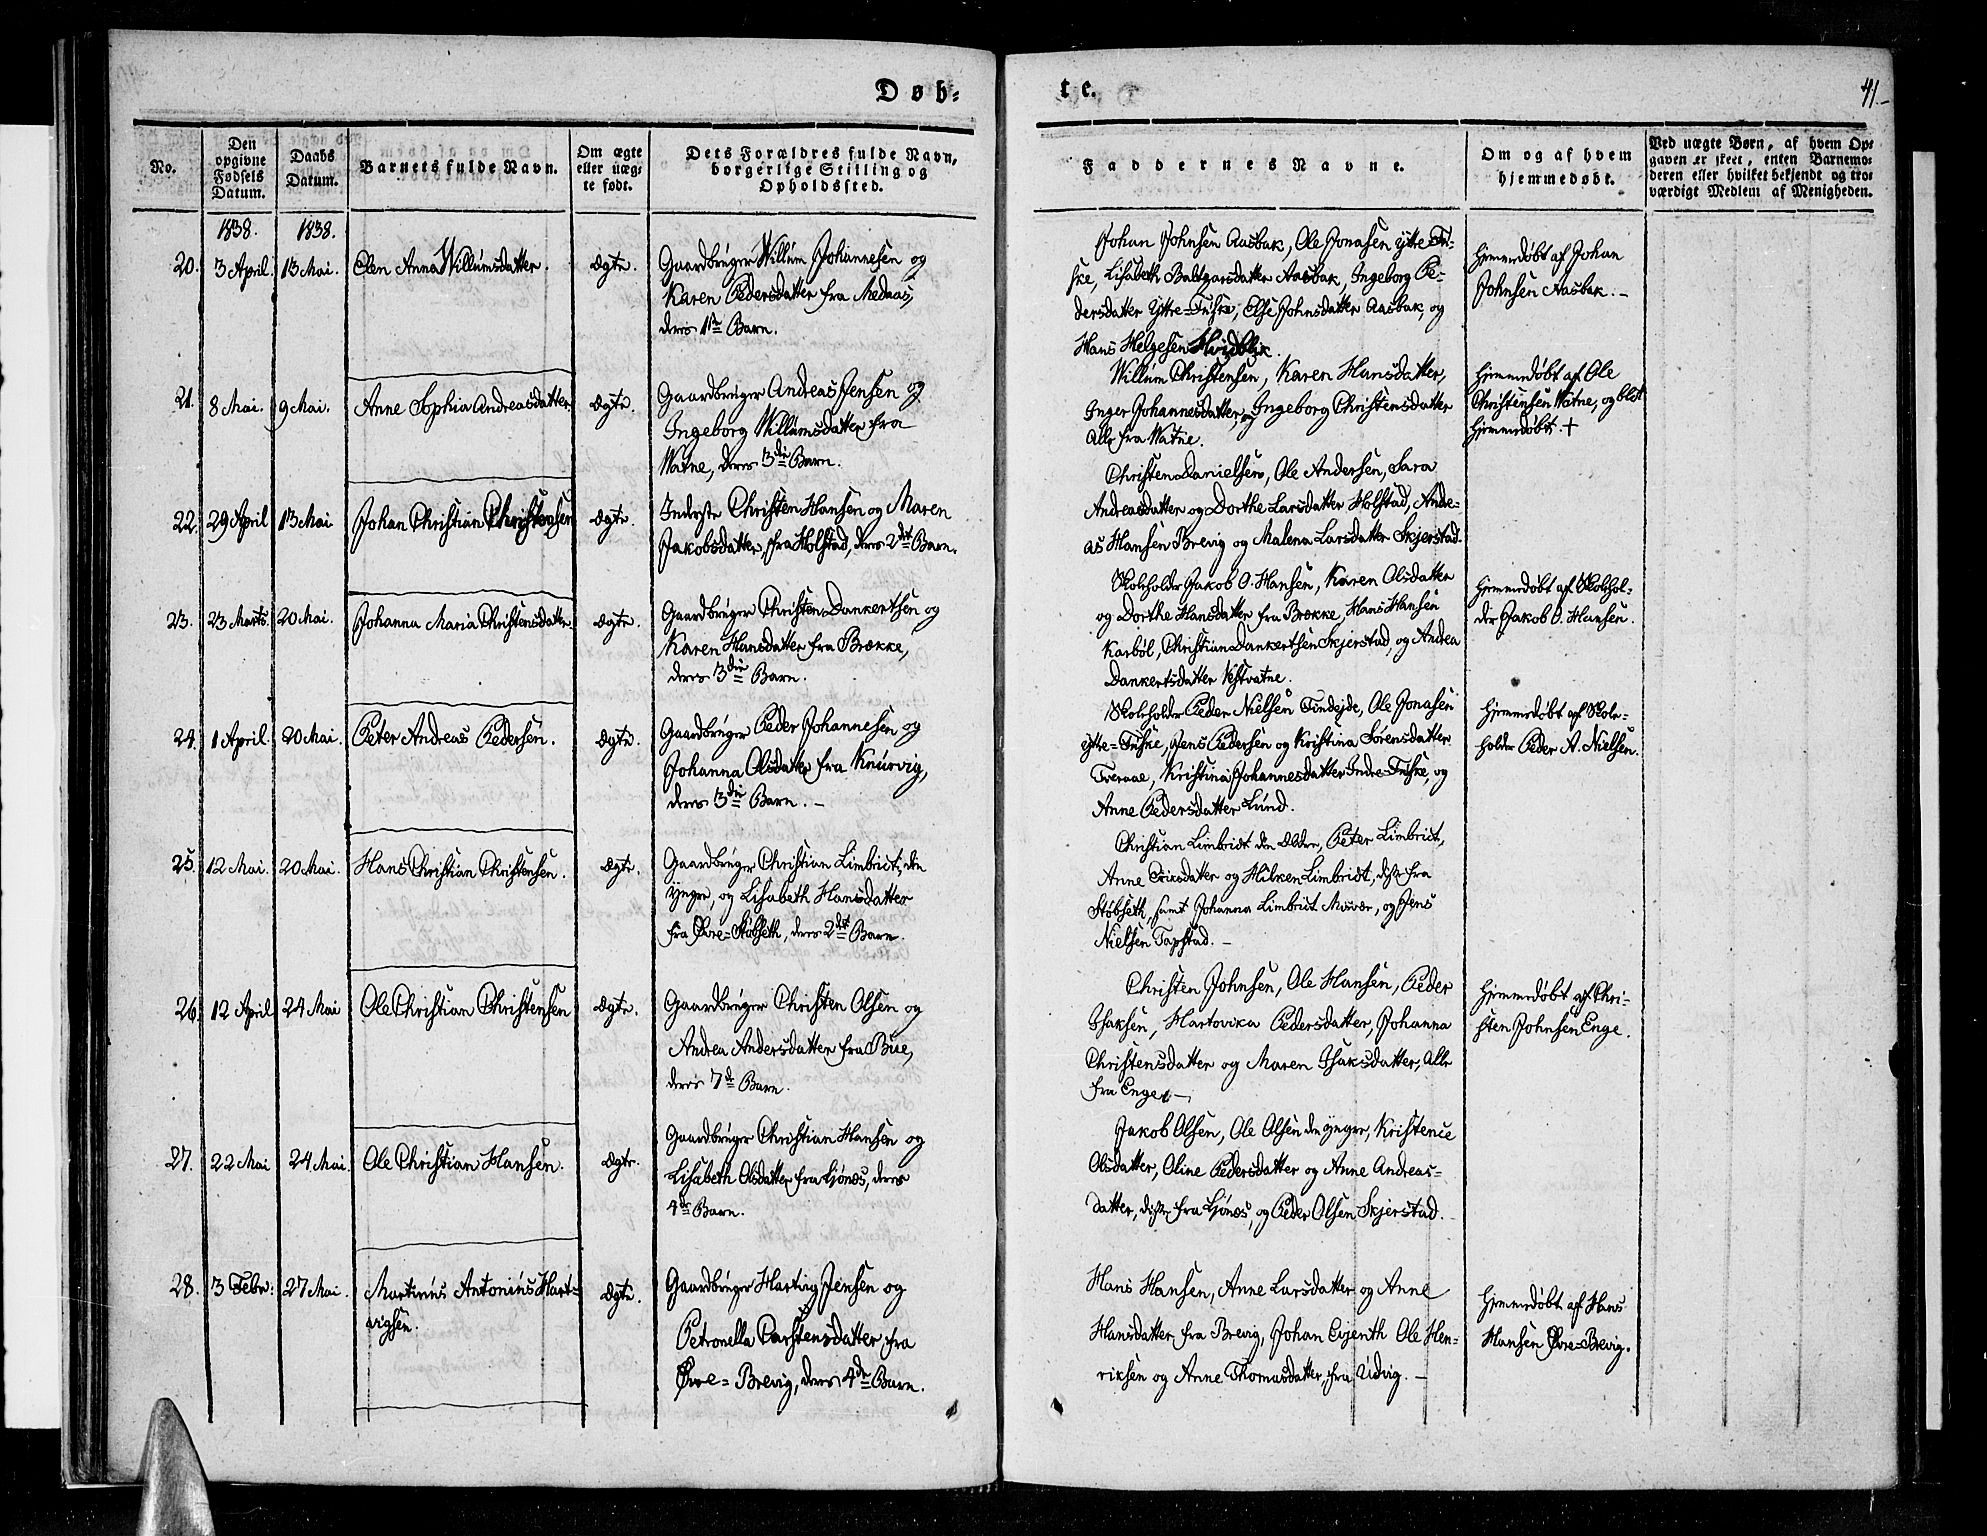 Døb-
te.
41.-
No.
Den opgivne Fødsels Datum.
Daabs Datum.
Barnets fulde Navn.
Om ægte eller uæg-te født.
Dets Forældres fulde Navn, borgerlige Stilling og Opholdssted.
Faddernes Navne.
Om og af hvem hjemmedøbt.
Ved uægte Børn, af hvem Op-gaven er skeet, enten Barnemo-deren eller hvilket bekjendt og tro-værdigt Medlem af Menigheden.
1838. 1838.
20. 3 April. 13 Mai. Elen Anna Willumsdatter. Ægte.
Gaardbruger Willum Johannesen og
Karen Pedersdatter fra Medaas,
deres 1ste Barn.
Johan Johnsen Aasbak, Ole Jonasen ytre Fu-
ske, Lisabeth Baltzarsdatter Aasbak, Ingeborg Pe-
dersdatter Ytre-Fuske, Else Johnsdatter Aasbak, og
Hans Helgesen Hvidblik.
Hjemmedøbt af Johan
Johnsen Aasbak. -
21. 8 Mai. 9 Mai. Anne Sophia Andreasdatter Ægte.
Gaardbruger Andreas Jensen og
Ingeborg Willumsdatter fra
Watne, deres 3die Barn.
Willum Christensen, Karen Hansdatter,
Inger Johannesdatter, og Ingeborg Christensdatter
Alle fra Watne.
Hjemmedøbt af Ole
Christensen Watne, og blot
hjemmedøbt. +
22. 29 April 13 Mai Johan Christian Christensen Ægte.
Inderste Christen Hansen og Maren
Jakobsdatter, fra Holstad, deres 2det Barn.
Christen Danielsen, Ole Andersen, Sara
Andreasdatter og Dorthe Larsdatter Holstad, Andre-
as Hansen Brevig og Malena Larsdatter Skjerstad.
23. 23 Marts. 20 Mai. Johanna Maria Christensdatter. Ægte.
Gaardbruger Christen Dankertsen og
Karen Hansdatter fra Brække,
deres 3die Barn.
Skoleholder Jakob O. Hansen, Karen Olsdatter
og Dorthe Hansdatter fra Brække, Hans Hansen
Karbøl, Christian Dankertsen Skjerstad, og Andrea
Dankertsdatter Vestvatne.
Hjemmedøbt af Skolehol-
der Jakob O. Hansen.
24. 1 April. 20 Mai. Peter Andreas Pedersen. Ægte.
Gaardbruger Peder Johannesen og
Johanna Olsdatter fra Knurvig,
deres 3die Barn. -
Skoleholder Peder Nielsen Tindejde, Ole Jonasen
ytre-Fuske, Jens Pedersen og Kristina Sørensdatter
Tveraae, Kristina Johannesdatter Indre-Fuske, og
Anne Pedersdatter Lund.
Hjemmedøbt af Skole-
holder Peder A. Nielsen.
25. 12 Mai. 20 Mai. Hans Christian Christensen. Ægte.
Gaardbruger Christian Limbridt, den
yngre, og Lisabeth Hansdatter
fra Øvre-Støbseth, deres 2det Barn.
Christian Limbridt den Ældre, Peter Limbridt,
Anne Eriksdatter og Hilken Limbridt, disse fra
Støbseth, samt Johanna Limbridt Misvær, og Jens
Nielsen Tapstad. -
26. 12 April 24 Mai Ole Christian Christensen Ægte.
Gaardbruger Christen Olsen og
Andrea Andersdatter fra Bue,
deres 7de Barn.
Christen Johnsen, Ole Hansen, Peder
Isaksen, Hartovika Pedersdatter, Johanna
Christensdatter og Maren Isaksdatter, Alle
fra Enge. -
Hjemmedøbt af Chri-
sten Johnsen Enge.
27. 22 Mai 24 Mai. Ole Christian Hansen. Ægte.
Gaardbruger Christian Hansen og
Lisabeth Olsdatter fra Ljønes, deres
4de Barn.
Jakob Olsen, Ole Olsen den yngre, Kristence
Olsdatter, Oline Pedersdatter og Anne Andreas-
datter, disse fra Ljønes, og Peder Olsen Skjerstad.
28. 3 Febr: 27 Mai. Martinus Antonius Hart-
vigsen. Ægte.
Gaardbruger Hartvig Jensen og
Petronella Carstensdatter fra
Øvre-Brevig, deres 4de Barn.
Hans Hansen, Anne Larsdatter og Anne
Hansdatter, fra Brevig, Johan Evjenth Ole Hen-
riksen og Anne Thomasdatter, fra Udvig. -
Hjemmedøbt af Hans
Hansen Øvre-Brevig.